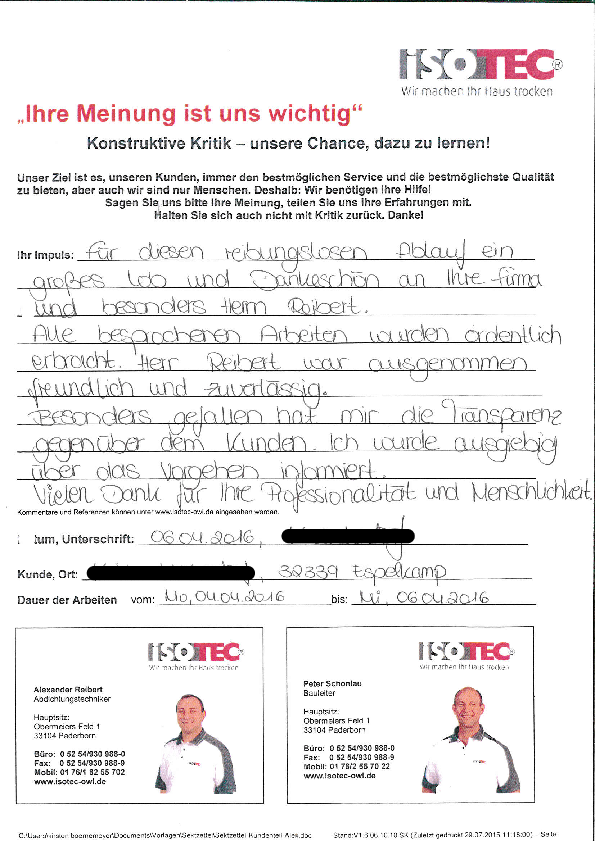 ISOTEC®
Wir machen Ihr Haus trocken
„Ihre Meinung ist uns wichtig“
Konstruktive Kritik – unsere Chance, dazu zu lernen!
Unser Ziel ist es, unseren Kunden, immer den bestmöglichen Service und die bestmöglichste Qualität
zu bieten, aber auch wir sind nur Menschen. Deshalb: Wir benötigen Ihre Hilfe!
Sagen Sie uns bitte Ihre Meinung, teilen Sie uns Ihre Erfahrungen mit.
Halten Sie sich auch nicht mit Kritik zurück. Danke!
Ihr Impuls: Für diesen reibungslosen Ablauf ein
großes Lob und Dankeschön an Ihre Firma
und besonders Herrn Reibert.
Alle besprochenen Arbeiten wurden ordentlich
erbracht. Herr Reibert war ausgenommen
freundlich und zuverlässig.
Besonders gefallen hat mir die Transparenz
gegenüber dem Kunden. Ich wurde ausgiebig
über das Vorgehen informiert.
Vielen Dank für Ihre Professionalität und Menschlichkeit.
Kommentare und Referenzen können unter www.isotec-owl.de eingesehen werden.
tum, Unterschrift: 06.04.2016,
Kunde, Ort: , 32339 Espelkamp
Dauer der Arbeiten vom: Mo, 04.04.2016 bis: Mi, 06.04.2016
ISOTEC®
Wir machen Ihr Haus trocken
Alexander Reibert
Abdichtungstechniker
Hauptsitz:
Obermeiers Feld 1
33104 Paderborn
Büro: 0 52 54/930 988-0
Fax: 0 52 54/930 988-9
Mobil: 01 76/1 82 55 702
www.isotec-owl.de
ISOTEC®
Wir machen Ihr Haus trocken
Peter Schonlau
Bauleiter
Hauptsitz:
Obermeiers Feld 1
33104 Paderborn
Büro: 0 52 54/930 988-0
Fax: 0 52 54/930 988-9
Mobil: 01 76/2 55 70 22
www.isotec-owl.de